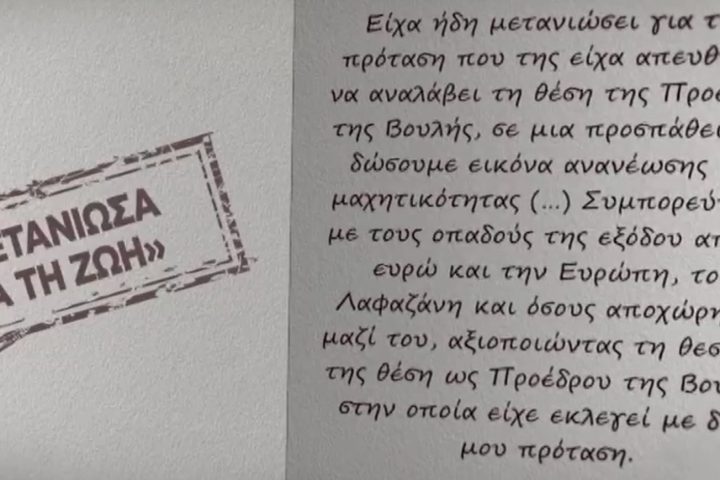 ΕΤΑΝΙΩΣΑ
Α ΤΗ ΖΩΗ»
Είχα ήδη μετανιώσει για τ
πρόταση που της είχα απευθ
να αναλάβει τη θέση της Προε
της Βουλής, σε μια προσπάθει
δώσουμε εικόνα ανανέωσης
μαχητικότητας (...) Συμπορεύ
με τους οπαδούς της εξόδου απ
ευρώ και την Ευρώπη, το
Λαφαζάνη και όσους αποχώρη
μαζί του, αξιοποιώντας τη θεσ
της θέση ως Προέδρου της Βου
στην οποία είχε εκλεγεί με δ
μου πρόταση.